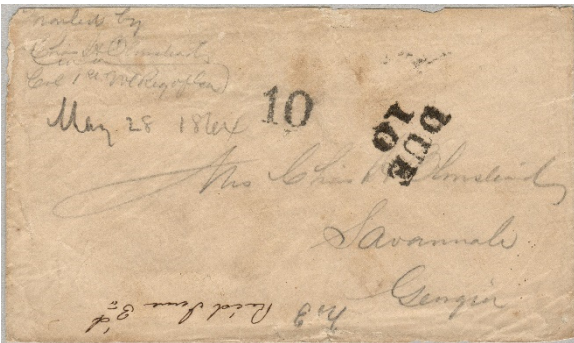 Mailed by
Chas H Olmstead
Col 1st Vol Reg of Ga
May 28 1864
10
DUE
10
Mrs Chas H Olmstead
Savannah
Georgia
Rec'd June 3d